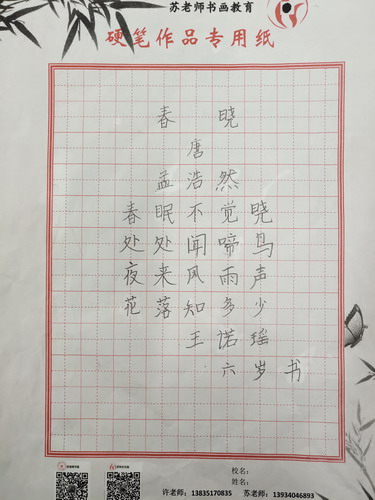 苏老师书画教育
硬笔作品专用纸
春 晓
唐
孟浩然
春眠不觉晓
处处闻啼鸟
夜来风雨声
花落知多少
王诺瑶
六岁书
校名:
姓名:
许老师:13835170835 苏老师:13934046893